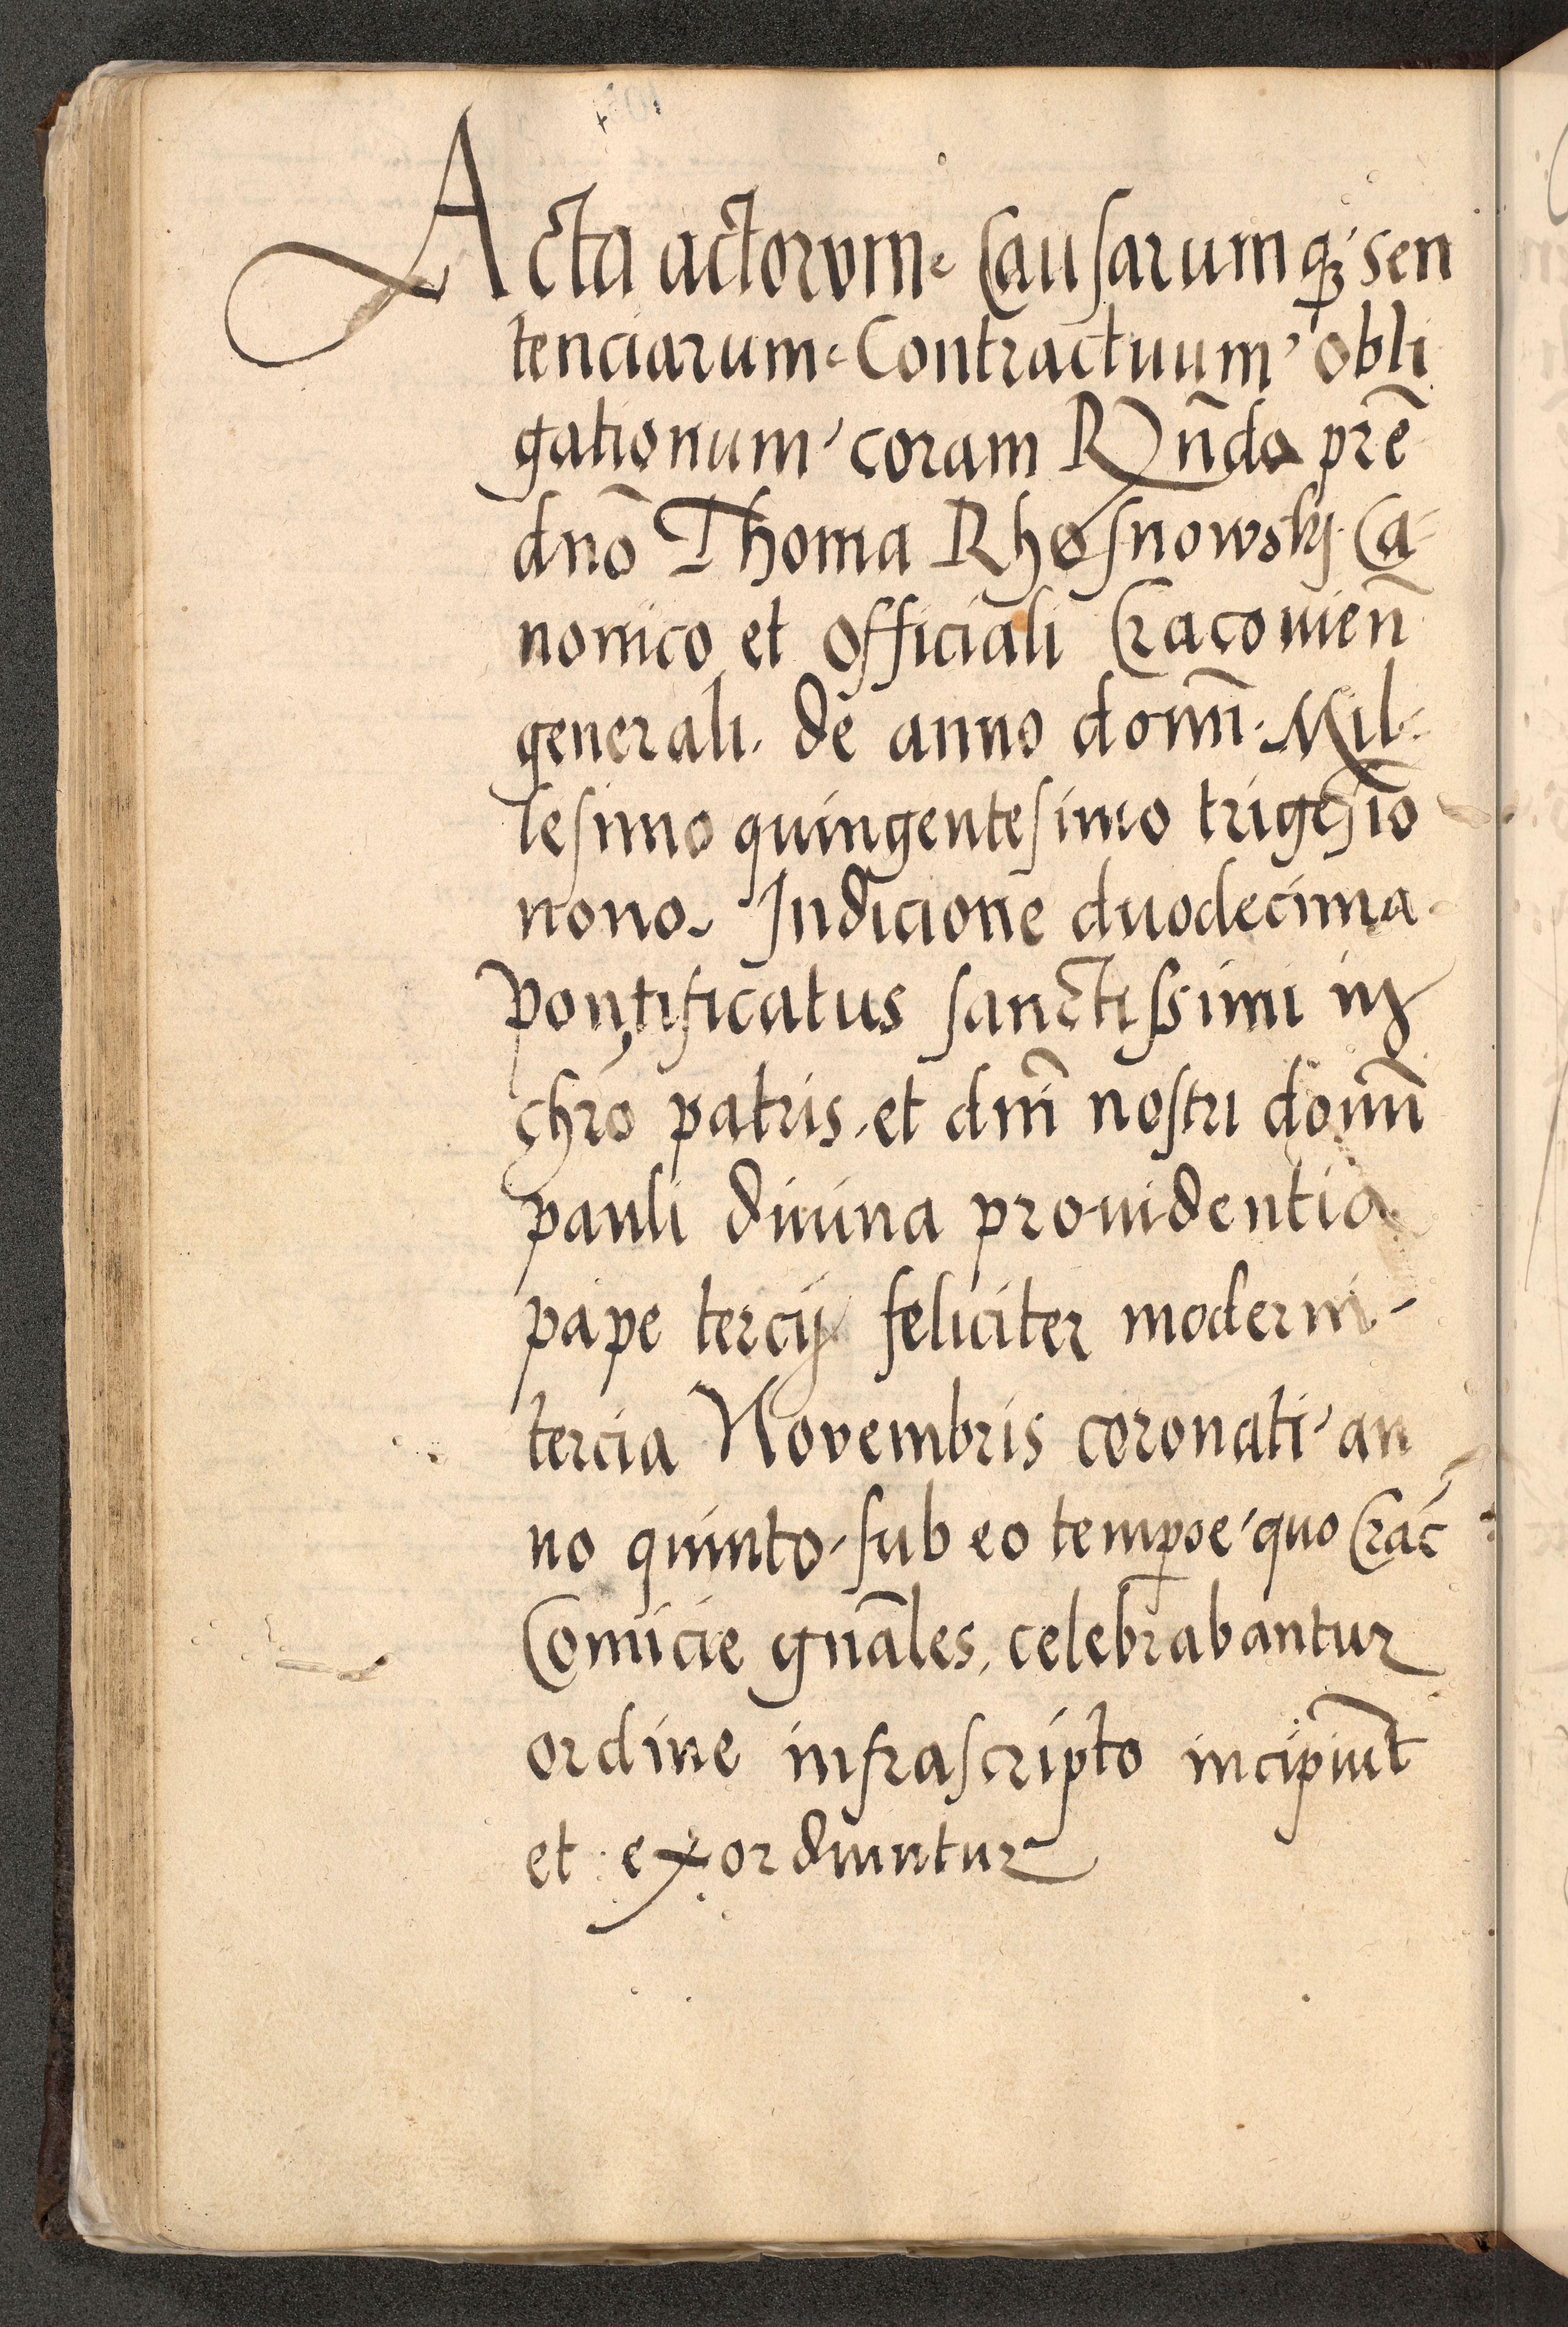 Acta actorum Causarumqꝫ sen
tenciarum Contractuum obli
gationum coram Rn̄do prē
dnō Thoma Rhosnowskj Ca-
nonico et Officiali Cracouien̄
generali. de anno domī. Mil-
lesimo quingentesimo trigesīo
nono. Indicione duodecima.
pontificatus sanctissimi in
chrō patris. et dm̄i nostri domī
pauli diuina prouidentia
pape tercij feliciter moderni-
tercia Novembris coronati an
no quinto. sub eo temꝑe quo Crac̄
Comicie gn̄ales, celebrabantur
ordine infrascripto incipiūt
et exordiuntur